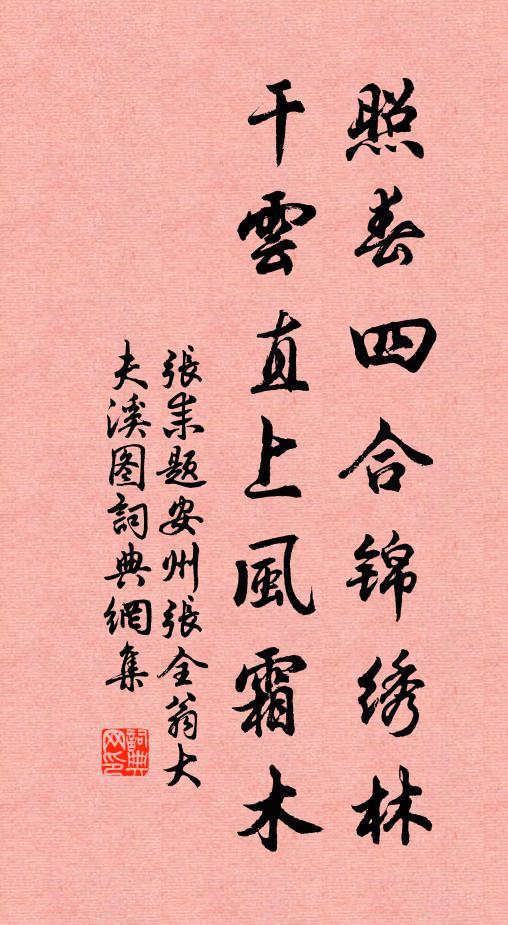 照春四合锦绣林
干雲直上風霜木
張耒題安州張全翁大
夫溪图詞典網集
詞典
网印